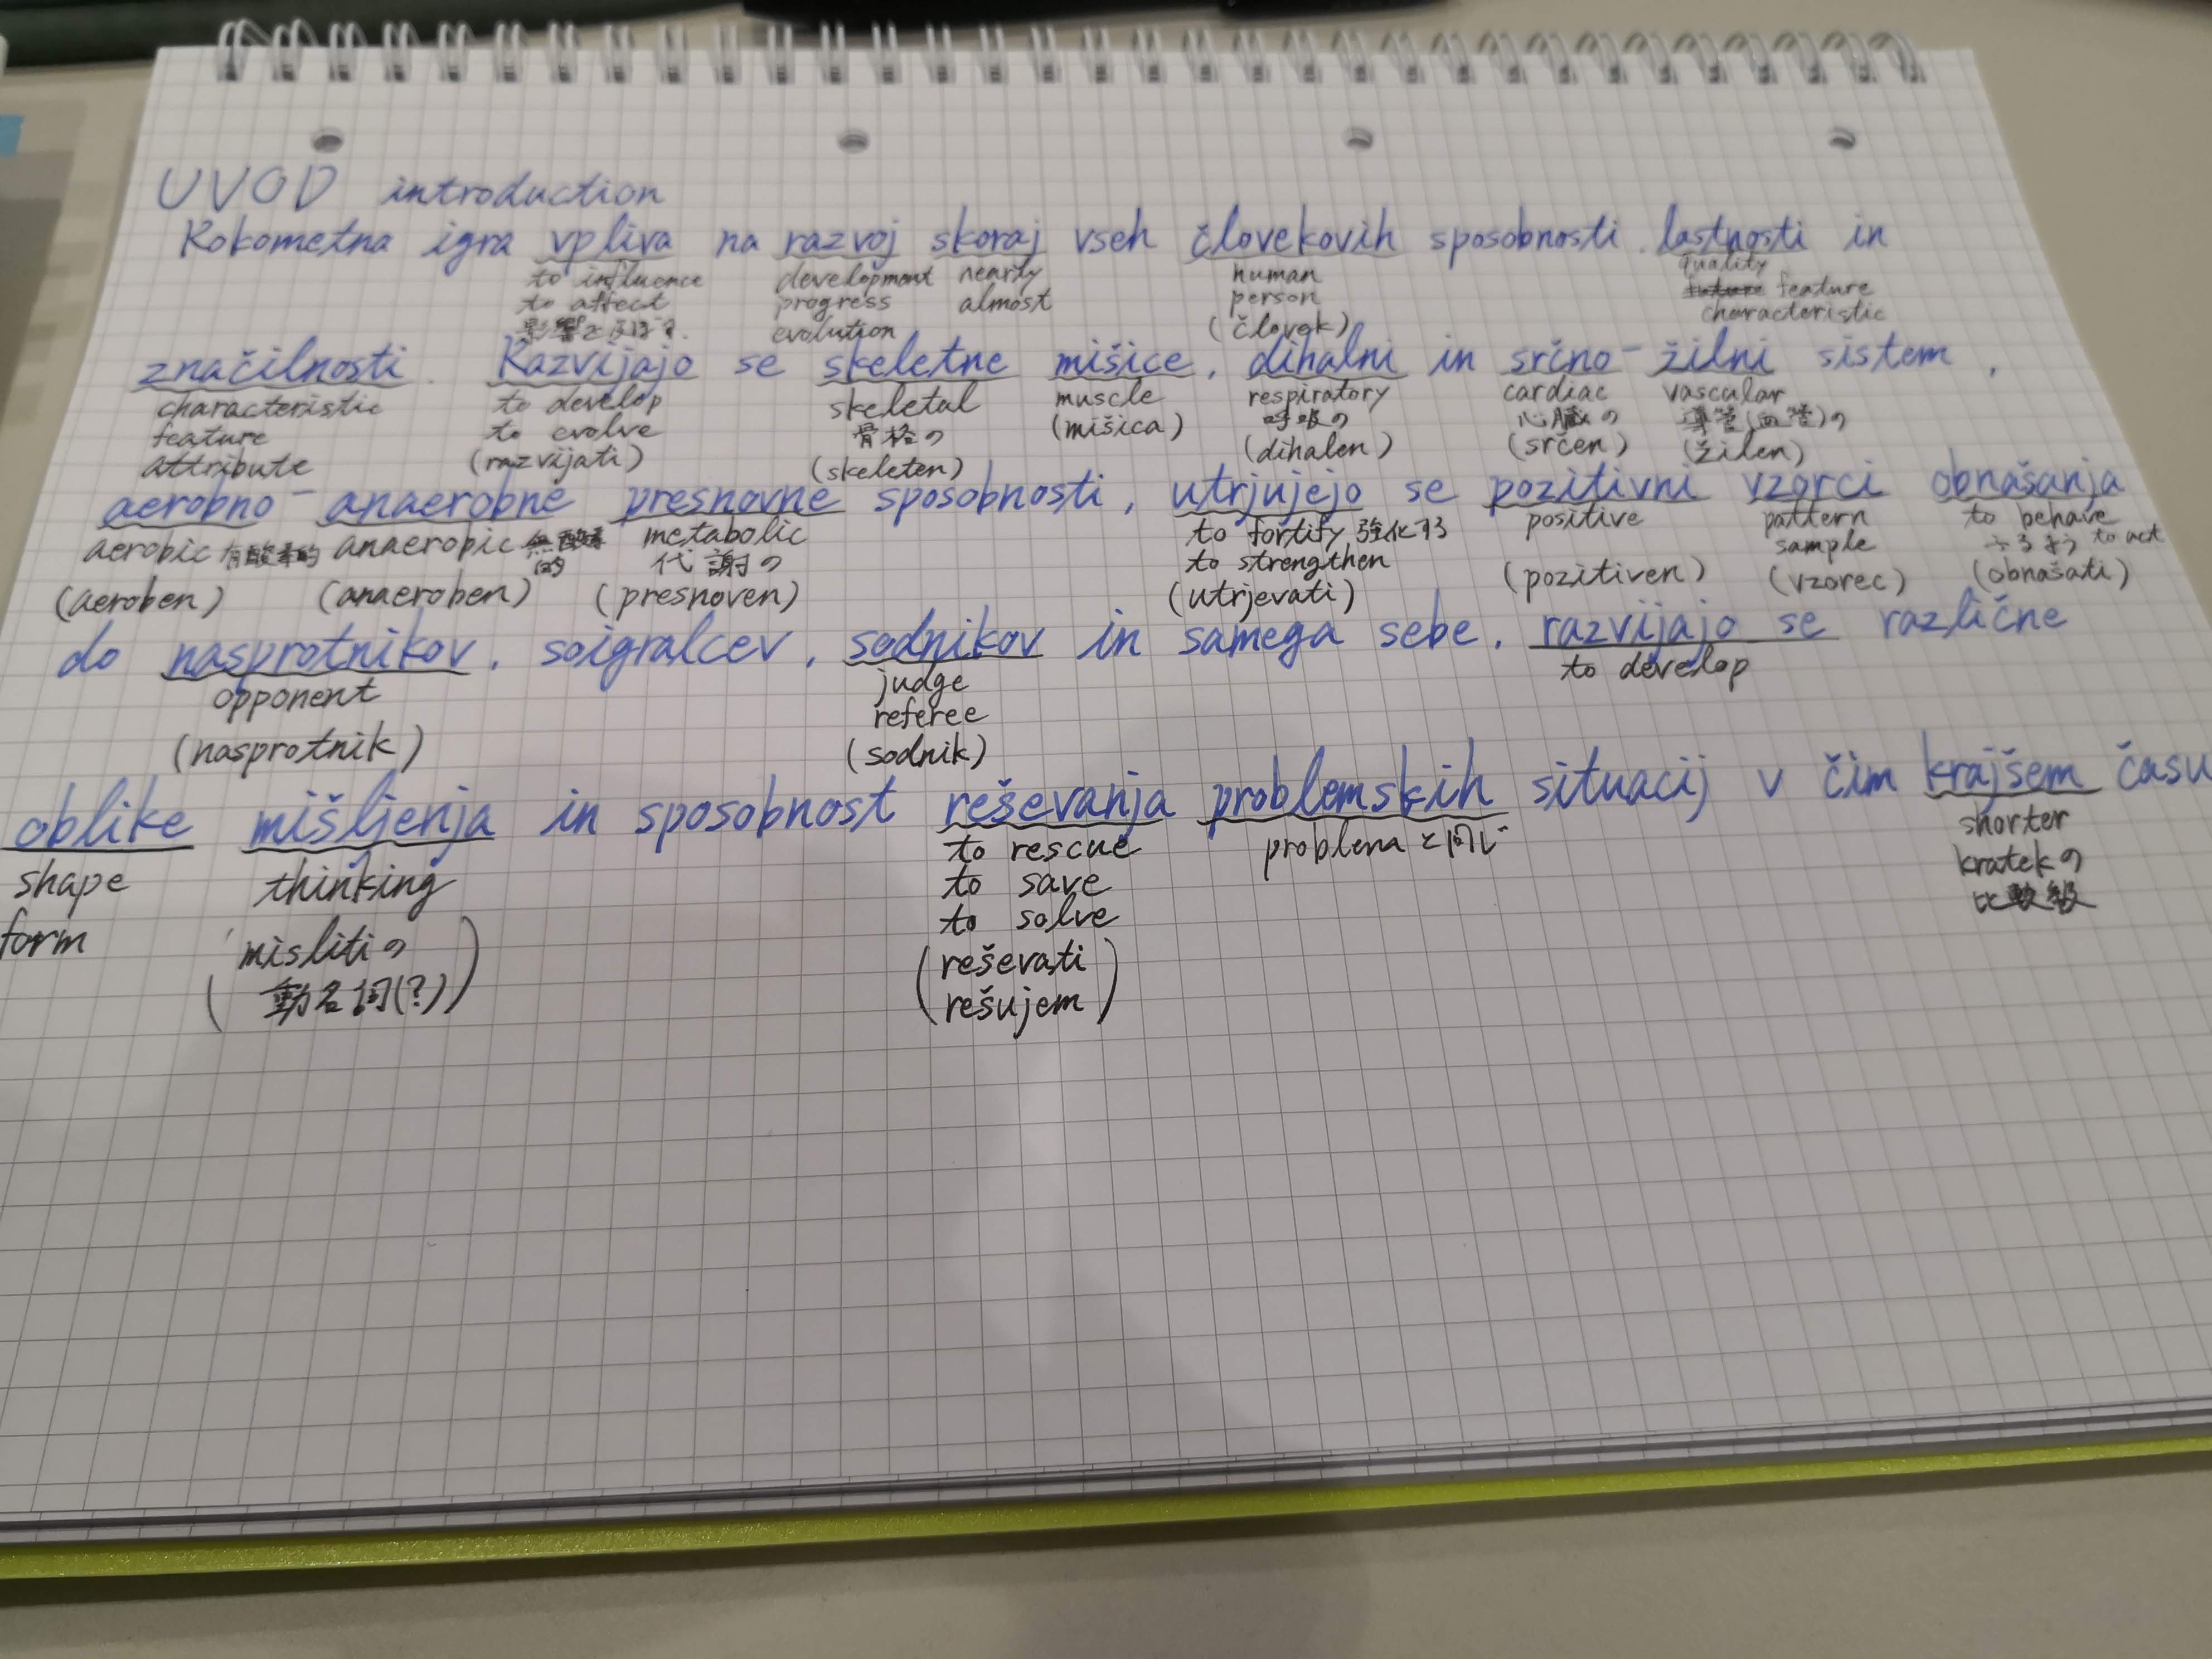 UVOD introduction
Rokometna igra vpliva na razvoj skoraj vseh človekovih sposobnosti. lastnosti in
to influence development nearly human quality
to affect progress almost person feature
影響を及ぼす. evolution (človek) characteristic
značilnosti. Razvijajo se skeletne mišice, dihalni in srčno-žilni sistem,
characteristic to develop skeletal muscle respiratory cardiac vascular
feature to evolve 骨格の (mišica) 呼吸の 心臓の 導管(血管)の
attribute (razvijati) (skeleten) (dihalen) (srčen) (žilen)
aerobno-anaerobne presnovne sposobnosti, utrjujejo se pozitivni vzorci obnašanja
aerobic 有酸素的 anaeropic 無酸素的 metabolic to fortify 強化する positive pattern to behave
代謝の to strengthen sample ふるまう to act
(aeroben) (anaeroben) (presnoven) (utrjevati) (pozitiven) (vzorec) (obnašati)
do nasprotnikov, soigralcev, sodnikov in samega sebe, razvijajo se različne
opponent judge to develop
referee
(nasprotnik) (sodnik)
oblike mišljenja in sposobnost reševanja problemskih situacij v čim krajšem času
shape thinking to rescue problema と同じ shorter
form to save kratekの
to solve 比較級
(misliti の reševati
動名詞(?)) rešujem